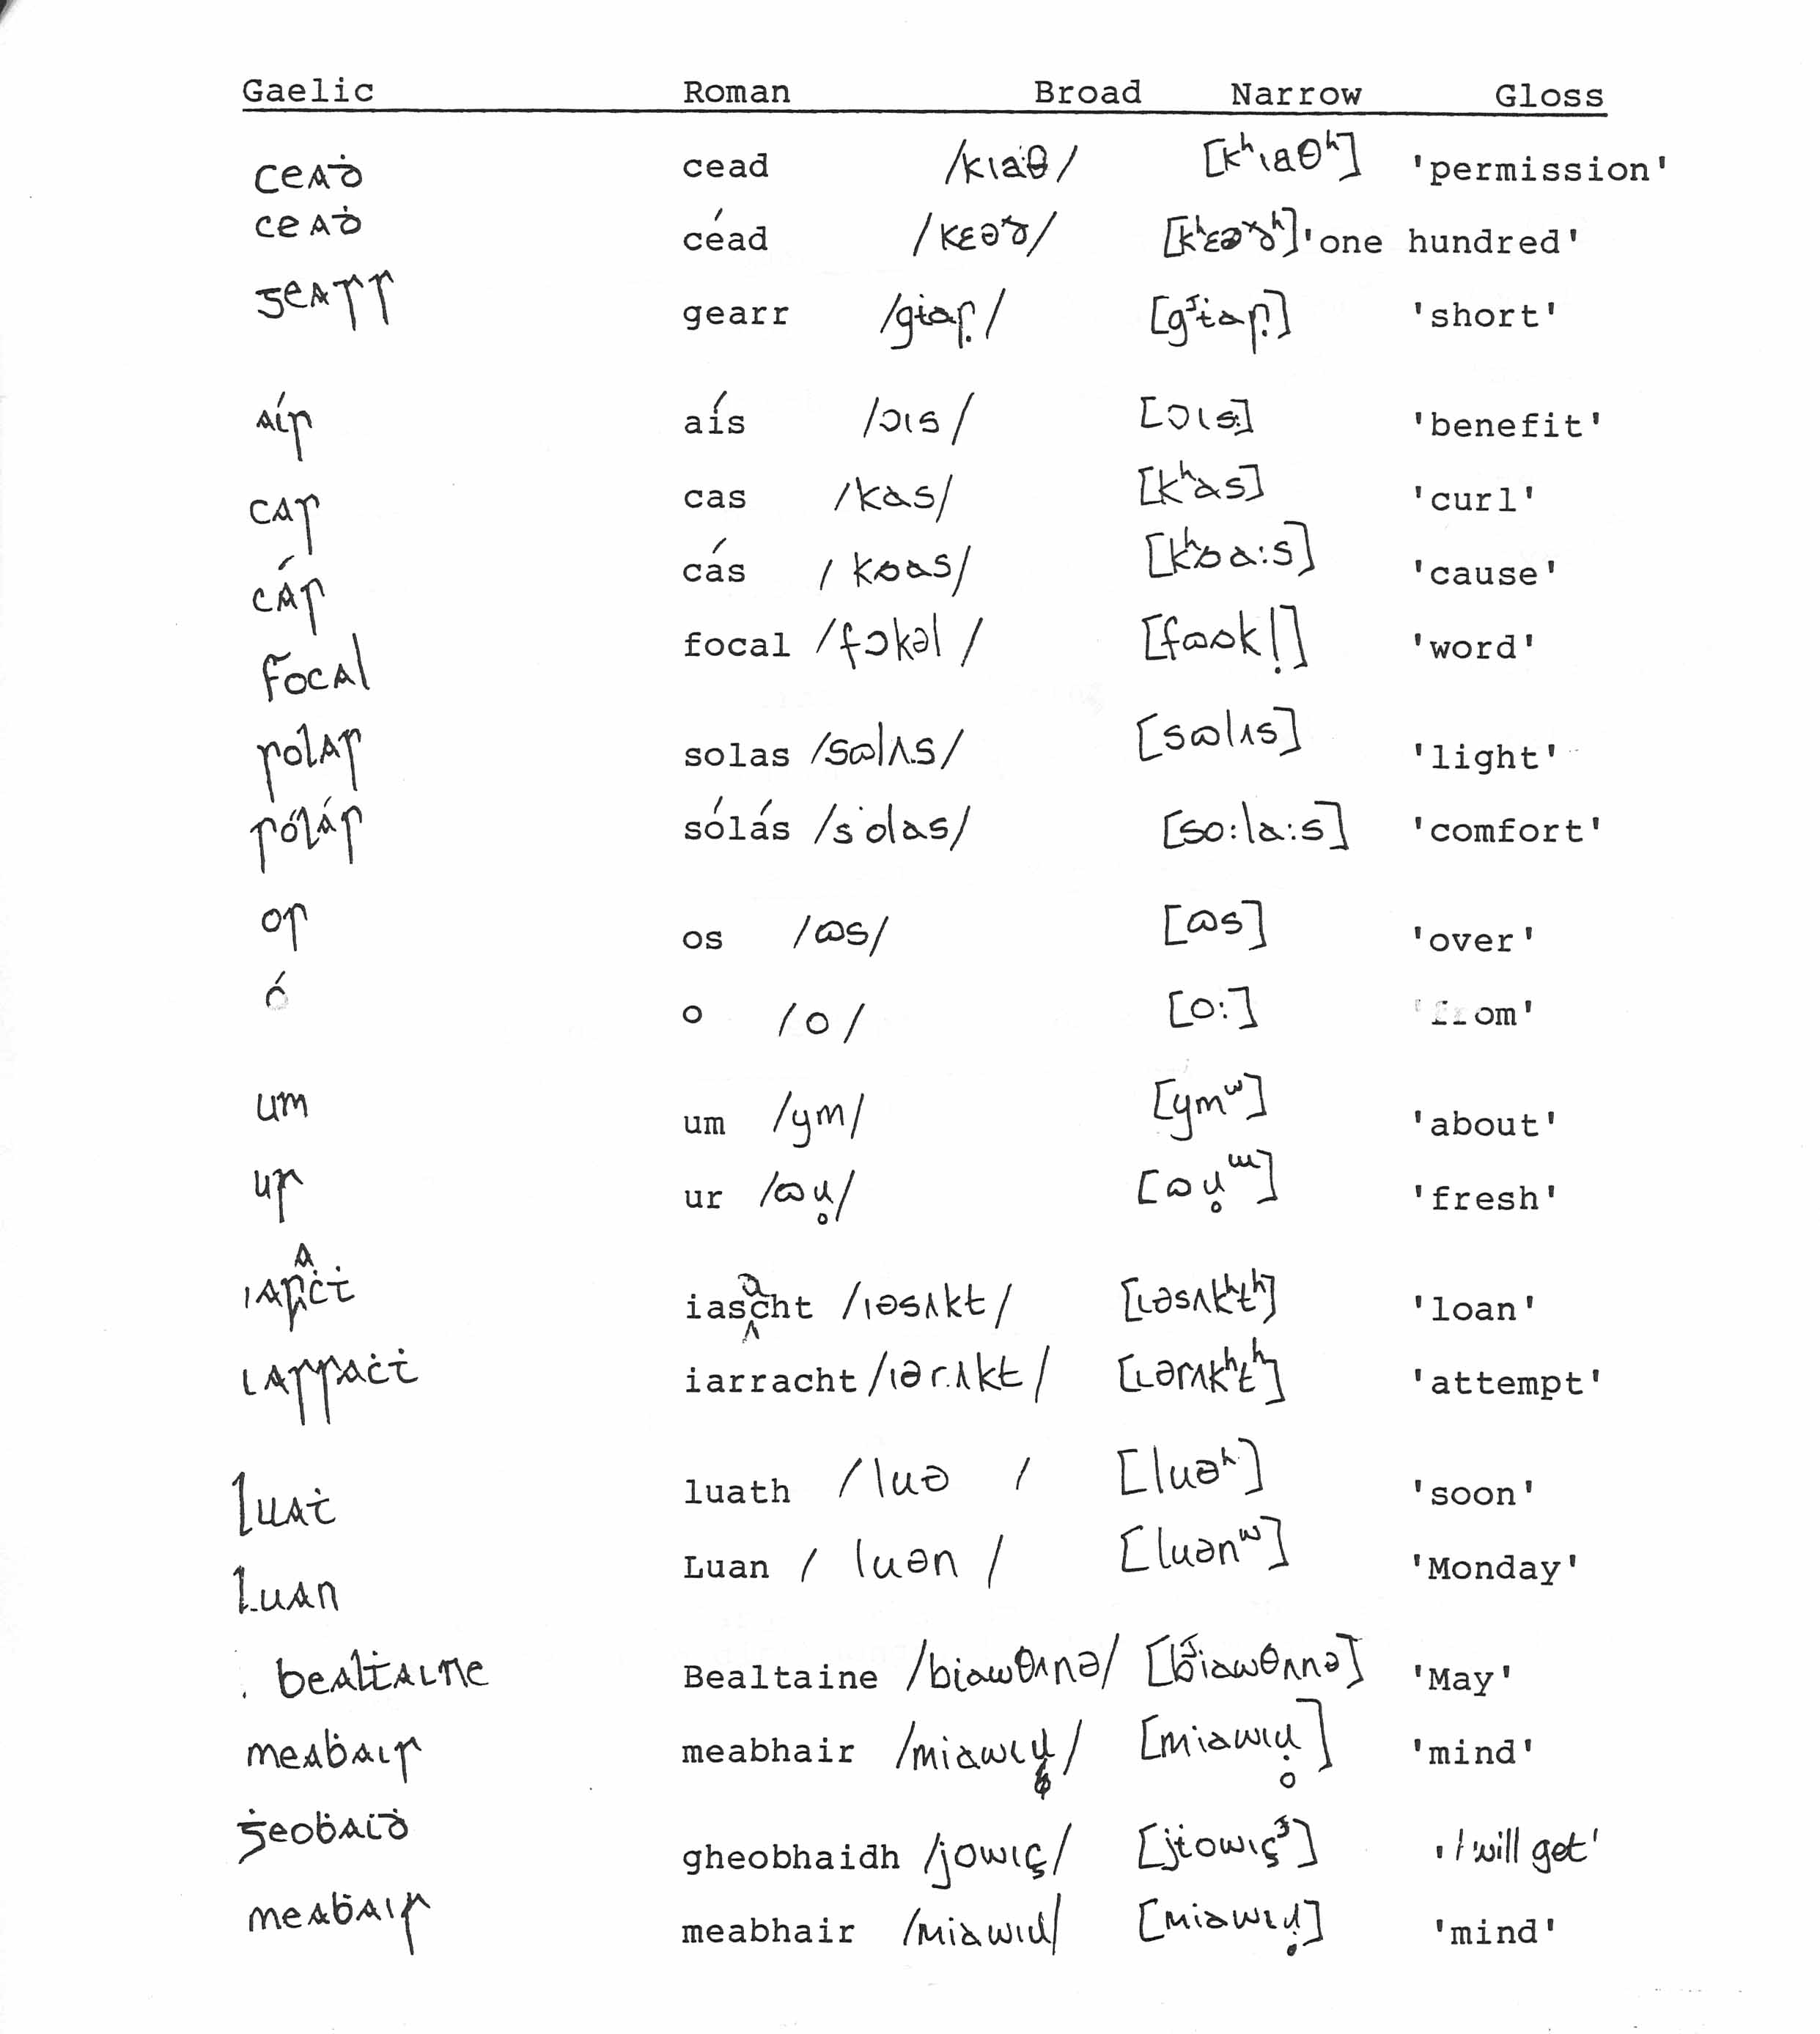 Gaelic Roman Broad Narrow Gloss
ceaḋ cead /kɩaθ/ [kʰɩaθʰ] 'permission'
ceaḋ céad /kɛəɤ/ [kʰɛəɤʰ] 'one hundred'
ꞃeaꞃꞃ gearr 'short'
aíꞅ aís /ɔɩs/ [ɔɩs] 'benefit'
caꞅ cas /kas/ [kʰas] 'curl'
cáꞅ cás /kɒas/ [kʰɒa:s] 'cause'
focal focal /fɔkəl/ 'word'
ꞅolaꞅ solas /sɷlʌs/ [sɷlʌs] 'light'
ꞅóláꞅ sólás /solas/ [so:la:s] 'comfort'
oꞅ os /ɷs/ [ɷs] 'over'
ó o /o/ [o:] 'from'
um um /ym/ [ymʷ] 'about'
uꞃ ur 'fresh'
ıaꞅaċṫ iasacht /ɩəsʌkt/ [ɩəsʌkʰtʰ] 'loan'
ıaꞃꞃaċṫ iarracht /ɩərʌkt/ [ɩərʌkʰtʰ] 'attempt'
luaṫ luath /luə / [luəʰ] 'soon'
Luan Luan / luən / [luənʷ] 'Monday'
bealṫaıne Bealtaine /biawθʌnə/ [bʲiawθʌnə] 'May'
meaḃaıꞃ meabhair 'mind'
ᵹ̇eoḃaıḋ gheobhaidh /jowɩç/ 'I will get'
meaḃaıꞃ meabhair 'mind'